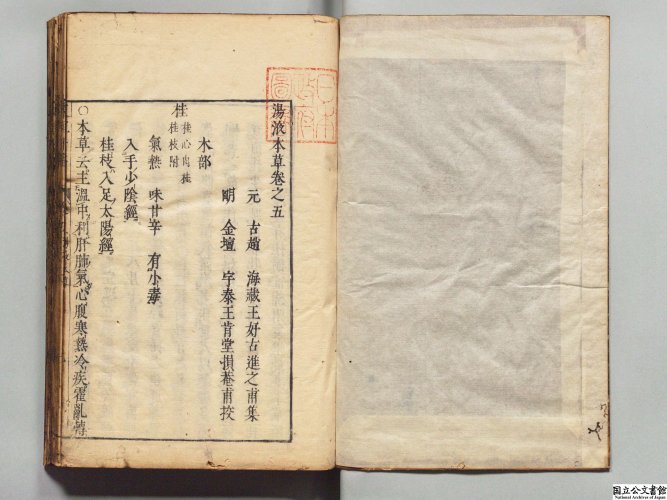 湯液本草卷之五
元 古趙 海藏王好古進之甫集
明 金壇 宇泰王肯堂損菴甫挍
木部
桂 桂心肉桂
桂枝附
氣熱 味甘辛 有小毒
入手少陰經
桂枝入足太陽經
○本草云主溫中利肝肺氣心腹寒熱冷疾霍亂轉
日本
政府
圖書
国立公文書館
National Archives of Japan